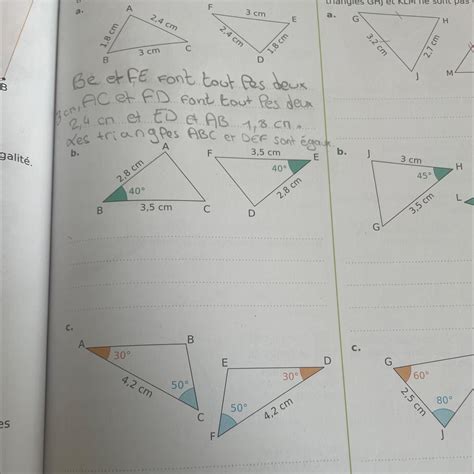 triangles GHJ et KLM ne sont pas
a.
A
2,4 cm
1,8 cm
B
3 cm
C
F
3 cm
E
2,4 cm
1,8 cm
D
a.
G
H
3,2 cm
2,7 cm
J
M
B
BC et FE font tout les deux
3cm, AC et FD font tout les deux
2,4 cm et ED et AB 1,8 cm.
Les triangles ABC et DEF sont égaux
galité.
b.
A
2,8 cm
40°
B
3,5 cm
C
F
3,5 cm
E
40°
2,8 cm
D
b.
J
3 cm
H
45°
3,5 cm
G
L
c.
A
B
30°
4,2 cm
50°
C
E
D
30°
50°
4,2 cm
F
c.
G
60°
2,5 cm
80°
J
es